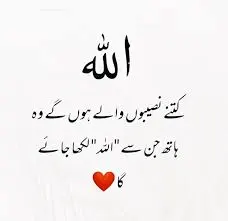 الله
کتنے نصیبوں والے ہوں گے وہ
ہاتھ جن سے "اللہ" لکھا جائے
گا ❤️